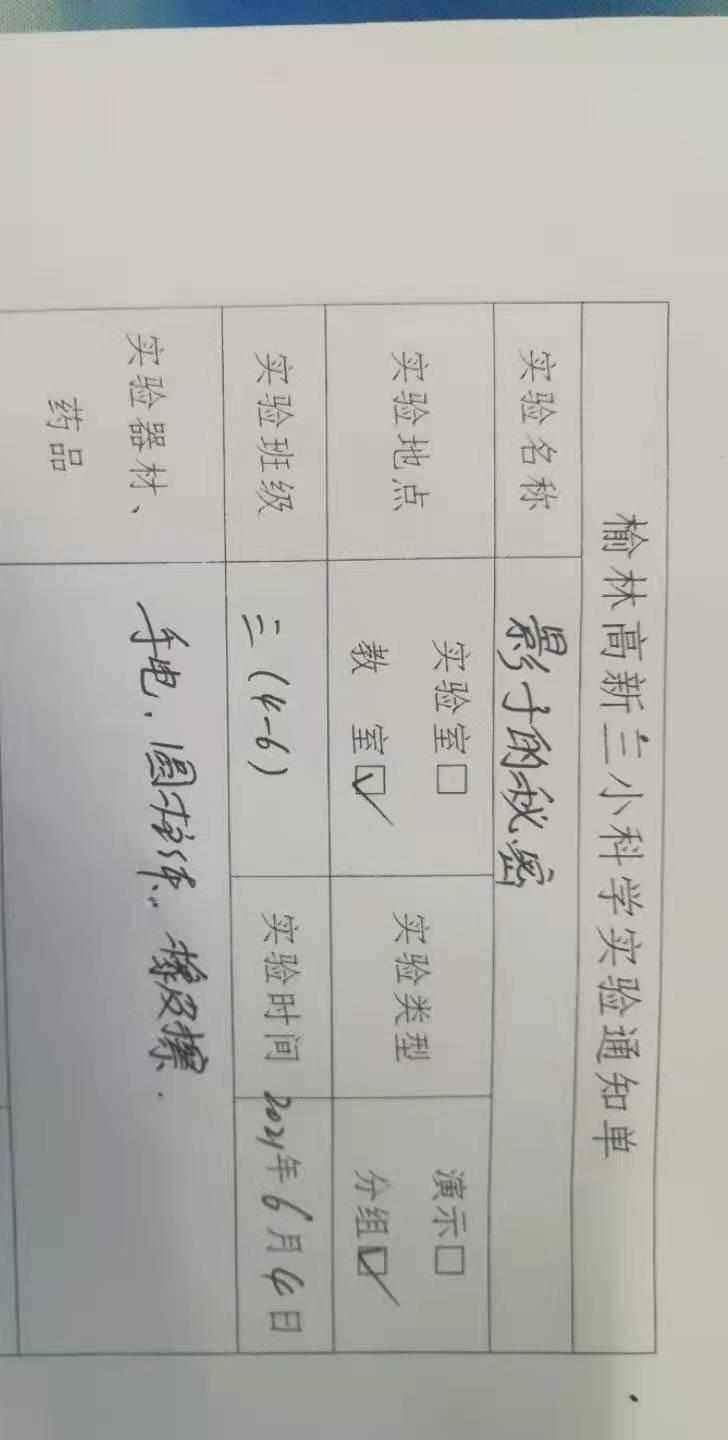 榆林高新三小科学实验通知单
实验名称 影子的秘密
实验地点 实验室□ 教 室☑ 实验类型 演示□ 分组☑
实验班级 三(4-6) 实验时间 2021年6月4日
实验器材、药品 手电、圆柱体、橡皮擦.